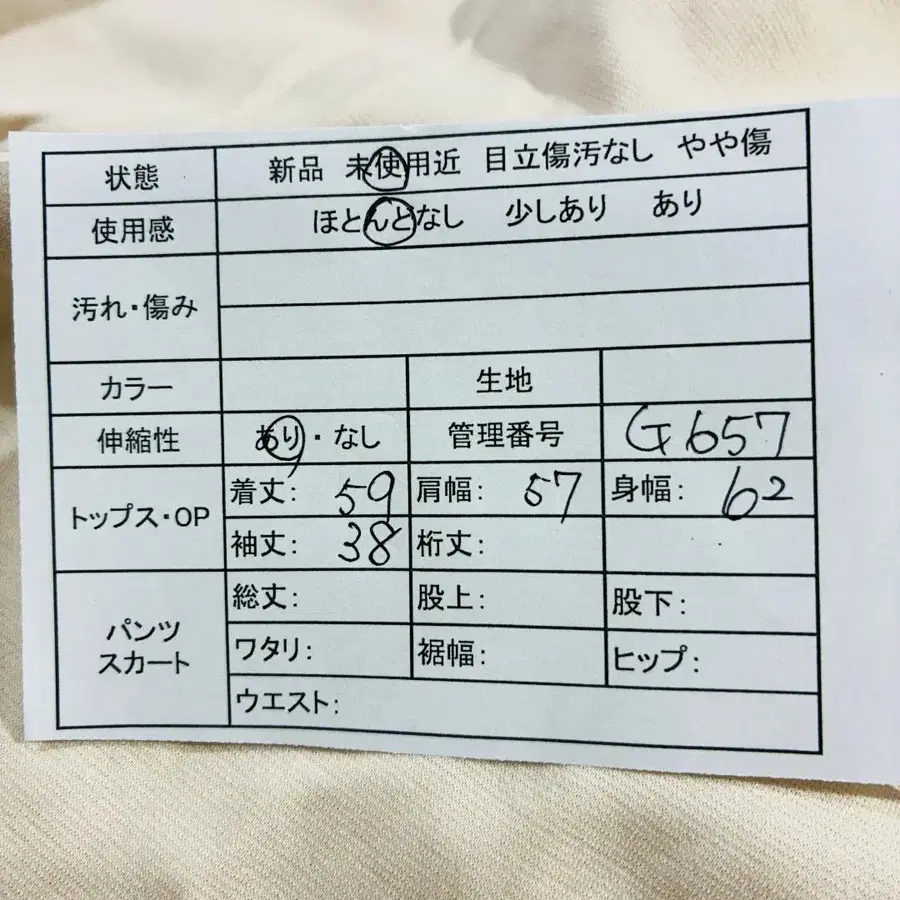 状態 新品 未使用近 目立傷汚なし やや傷
使用感 ほとんどなし 少しあり あり
汚れ・傷み
カラー 生地
伸縮性 あり・なし 管理番号 G657
トップス・OP
着丈: 59 肩幅: 57 身幅: 62
袖丈: 38 裄丈:
パンツ
スカート
総丈: 股上: 股下:
ワタリ: 裾幅: ヒップ:
ウエスト: